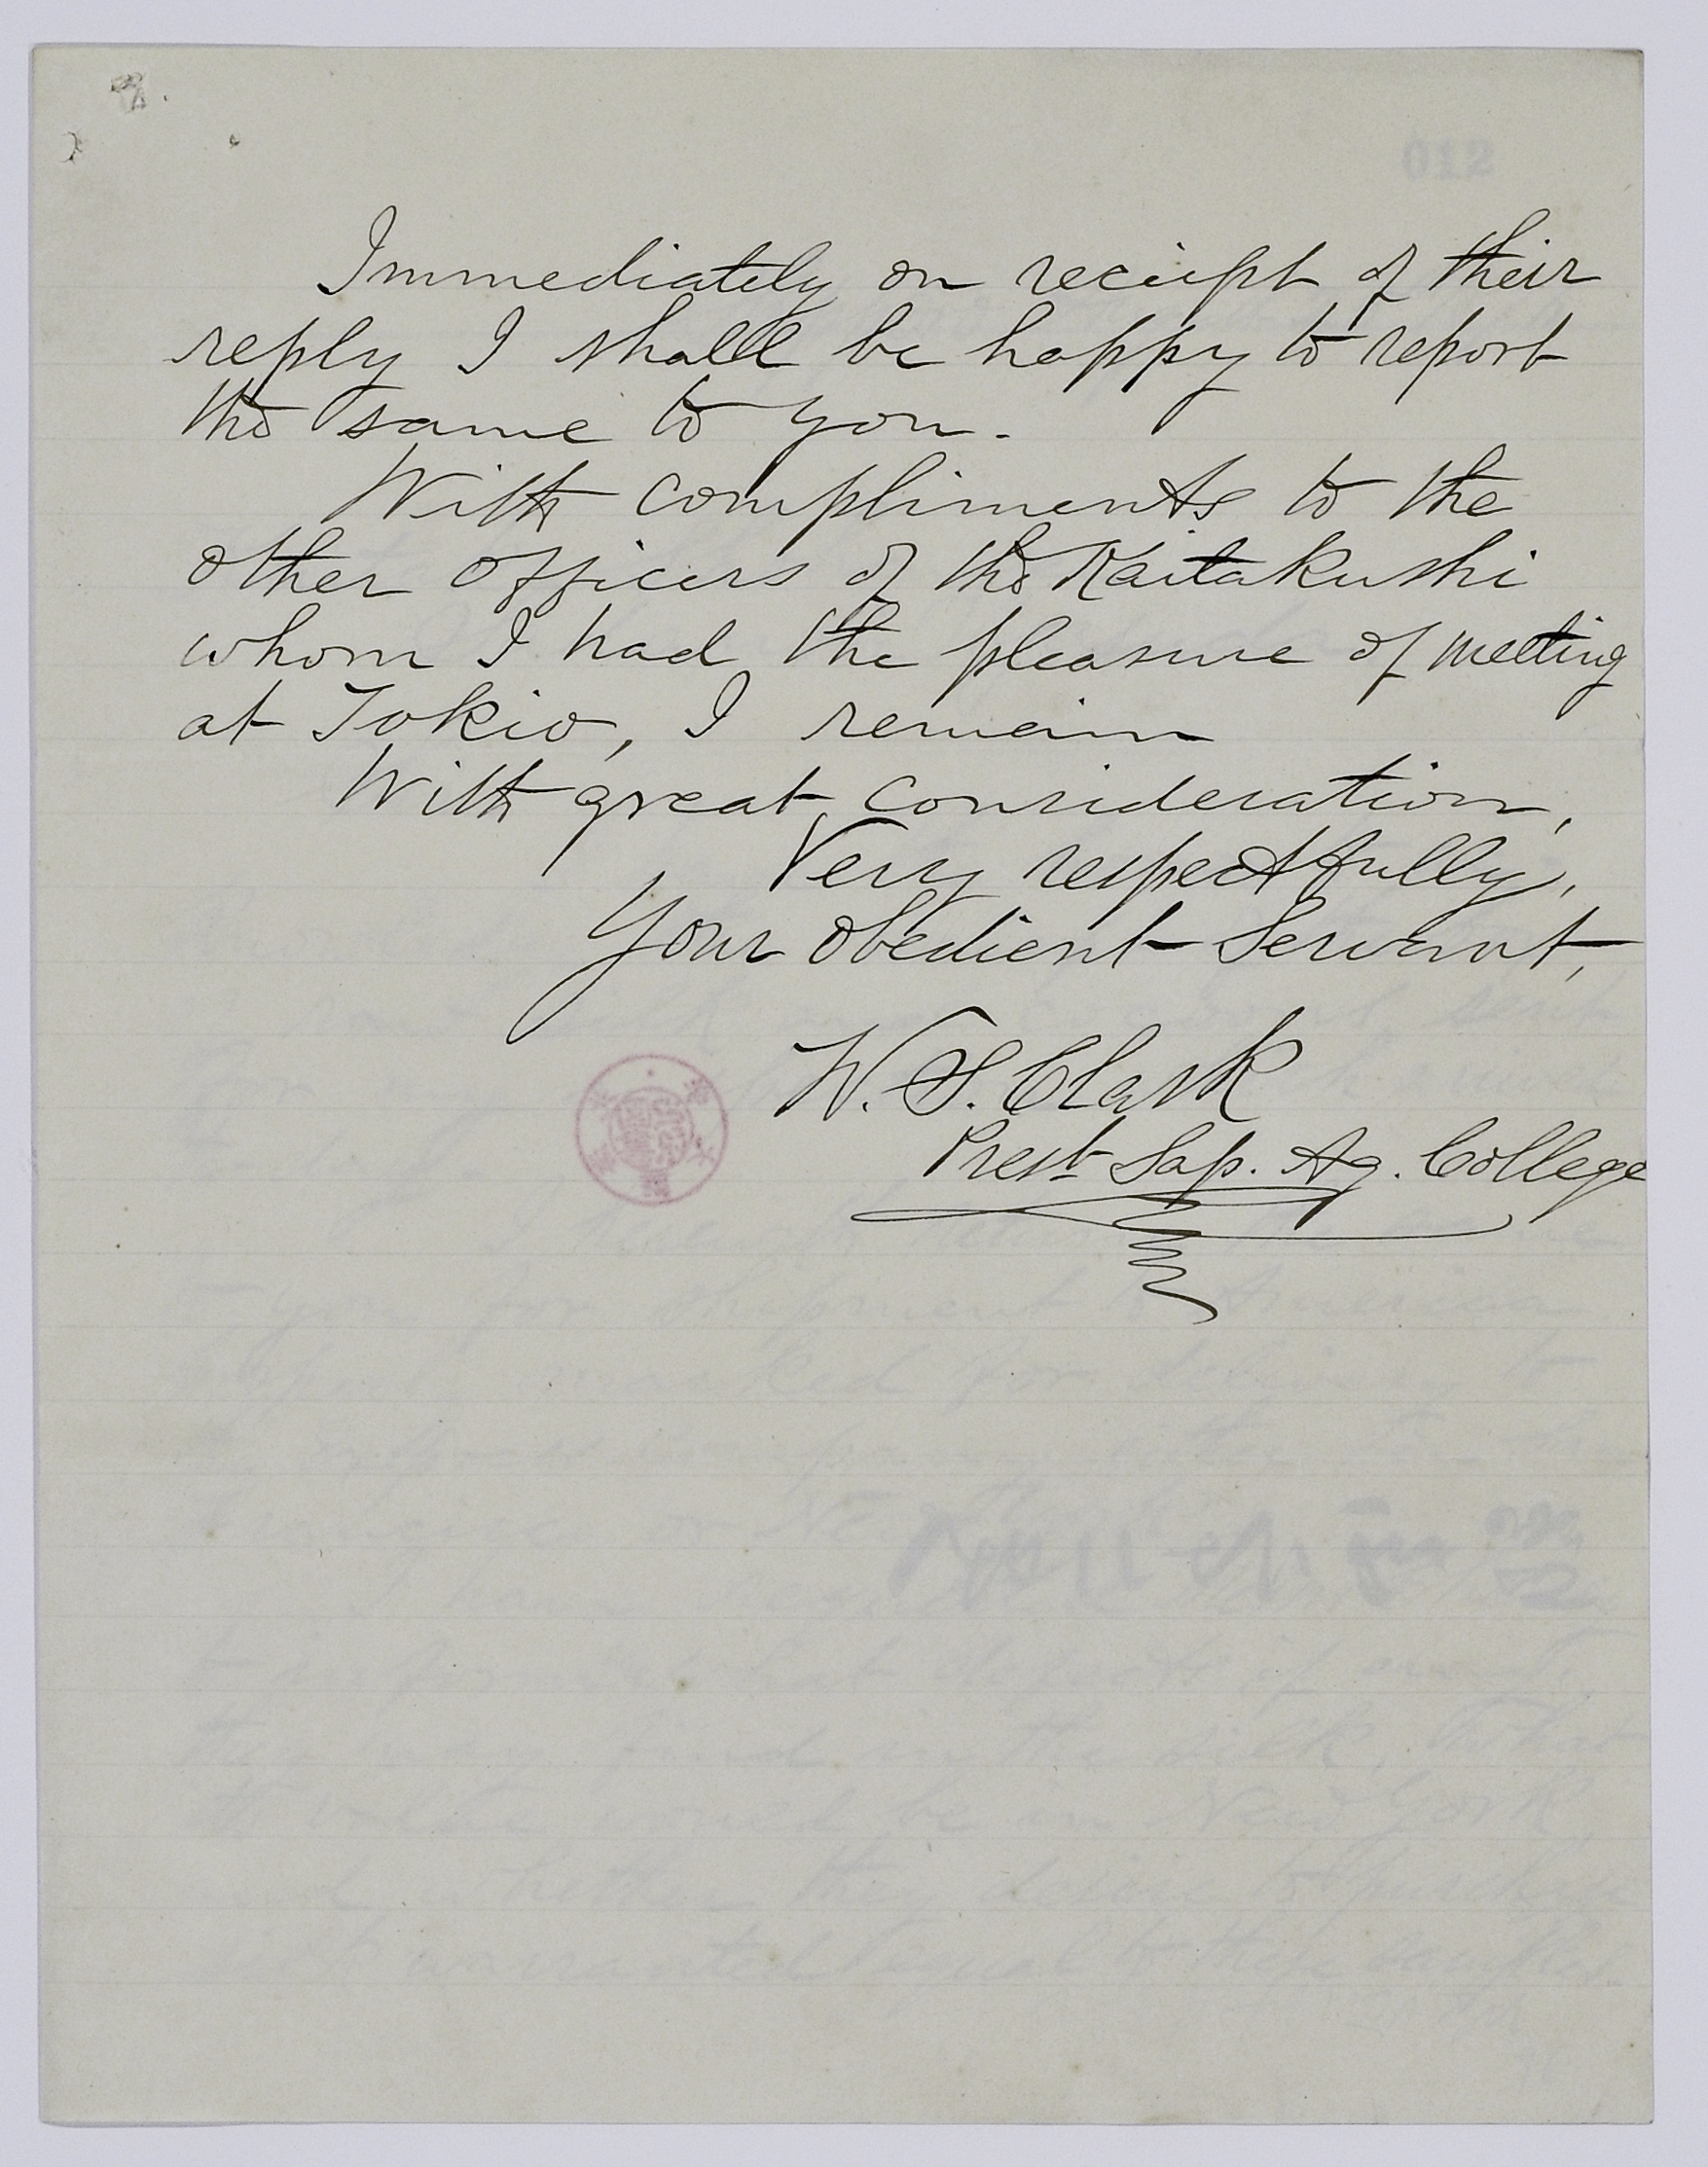 012
Immediately on receipt of their
reply I shall be happy to report
the same to you.
With compliments to the
other officers of the Kaitakushi
whom I had the pleasure of meeting
at Tokio, I remain
With great consideration,
Very respectfully,
Your obedient servant,
W. S. Clark
Prest Sap. Ag. College